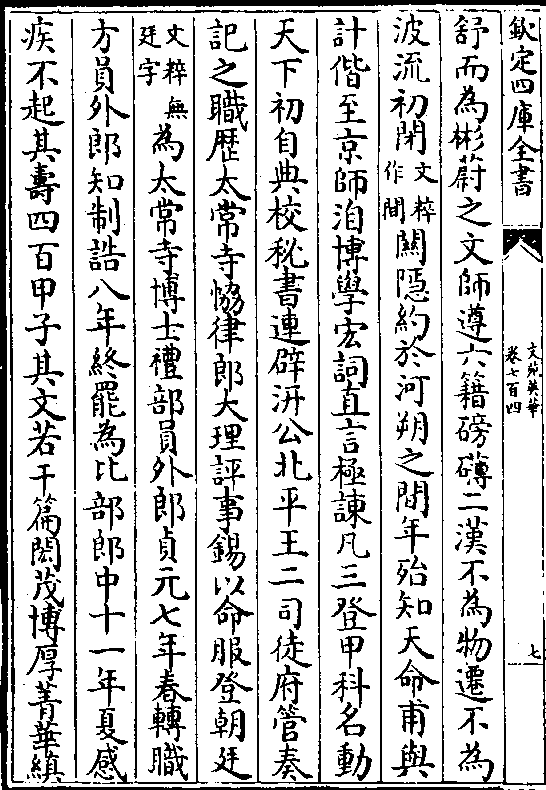 欽定四庫全書
文苑英華
卷七百四
七
舒而為彬蔚之文師遵六籍磅礴二漢不為物遷不為
波流初閉文粹作間關隱約於河朔之間年殆知天命甫與
計偕至京師洎博學宏詞直言極諫凡三登甲科名動
天下初自典校秘書連辟汧公北平王二司徒府管奏
記之職歴太常寺恊律郎大理評事錫以命服登朝廷
文粹無廷字為太常寺博士禮部員外郎貞元七年春轉職
方員外郎知制誥八年終罷為比部郎中十一年夏感
疾不起其壽四百甲子其文若干篇閎茂博厚菁華縝